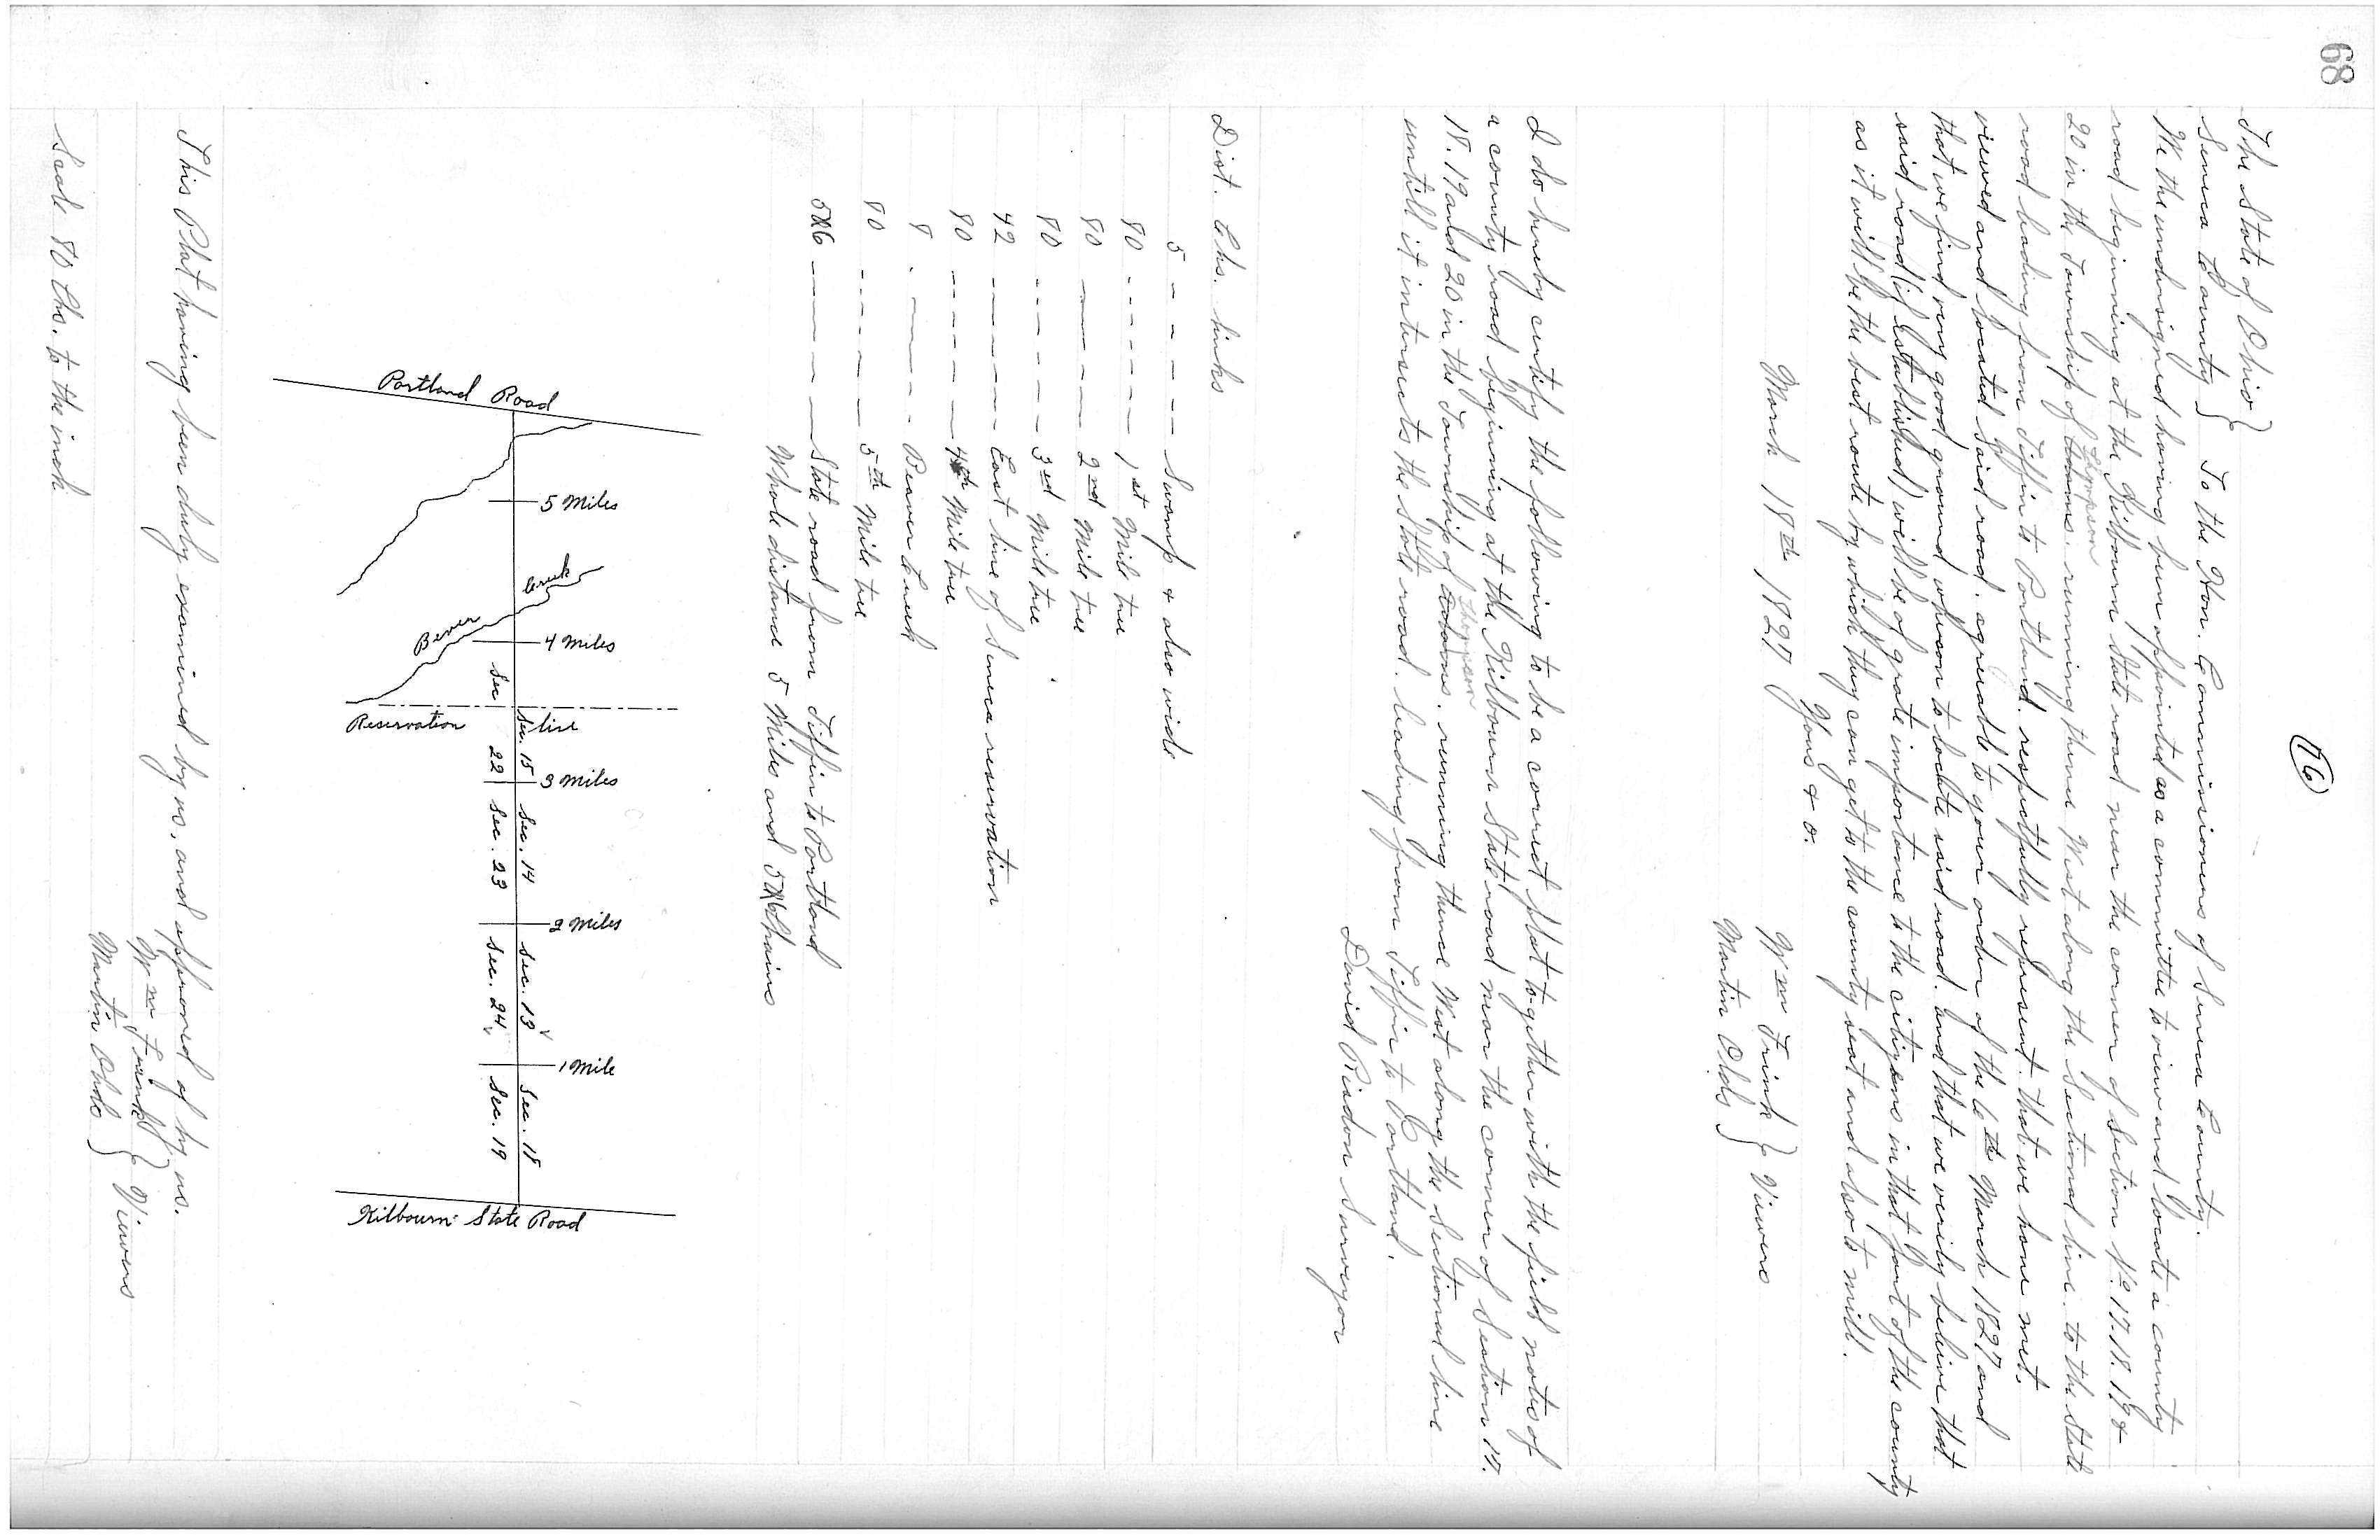 68
(76)
The State of Ohio }
Seneca County } To the Hon. Commissioners of Seneca County.
We the undersigned having been appointed as a committee to view and locate a county
road beginning at the Kilbourn State road near the corner of Section No 17. 18. 19 &
20 in the Township of Thompson running thence West along the Sectional line. to the State
road leading from Tiffin to Portland. respectfully represent. that we have met.
viewed and located said road. agreeable to your order of the 6th March 1827 and
that we find very good ground whereon to locate said road. and that we verily believe that
said road (if established) will be of grate importance to the citizens in that part of the county
as it will be the best route by which they can get to the county seat and also to mill.
Yours & c.
March 18th 1827
Wm Frink } Viewers
Martin Olds }
I do hereby certify the following to be a correct plat together with the field notes of
a county road beginning at the Kilbourn State road near the corner of Section 17.
18. 19 and 20 in the Township of Thompson running thence West along the Sectional line
untill it intersects the State road. leading from Tiffin to Portland.
David Risdon Surveyor
Dist. Chs. links
5 - - - - - - Swamp & also wide
80 - - - - - - 1st Mile tree
80 - - - - 2nd Mile tree
80 - - - - - - 3rd Mile tree
42 - - - - - East line of Seneca reservation
80 - - - - - 4th Mile tree
8 - - - - Beaver Creek
80 - - - - - 5th Mile tree
56 - - - - State road from Tiffin to Portland
Whole distance 5 Miles and 56 chains
Portland Road
5 Miles
Creek
Bever
4 Miles
Sec
Reservation line
Sec. 15
22
3 Miles
Sec. 14
Sec. 23
2 Miles
Sec. 13
Sec. 24
1 Mile
Sec. 18
Sec. 19
Kilbourn State Road
This Plat having been duly examined by us, and approved of by us.
Wm Frink } Viewers
Martin Olds }
Scale 80 Chs. to the inch